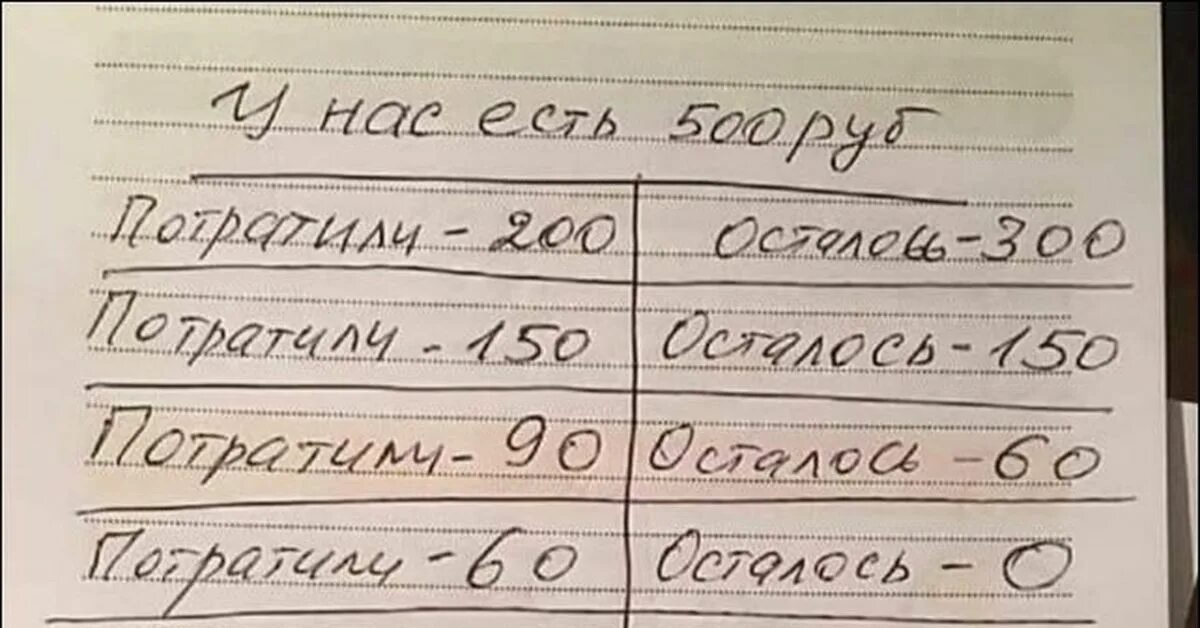 У нас есть 500 руб
Потратили - 200 Осталось - 300
Потратили - 150 Осталось - 150
Потратили - 90 Осталось - 60
Потратили - 60 Осталось - 0